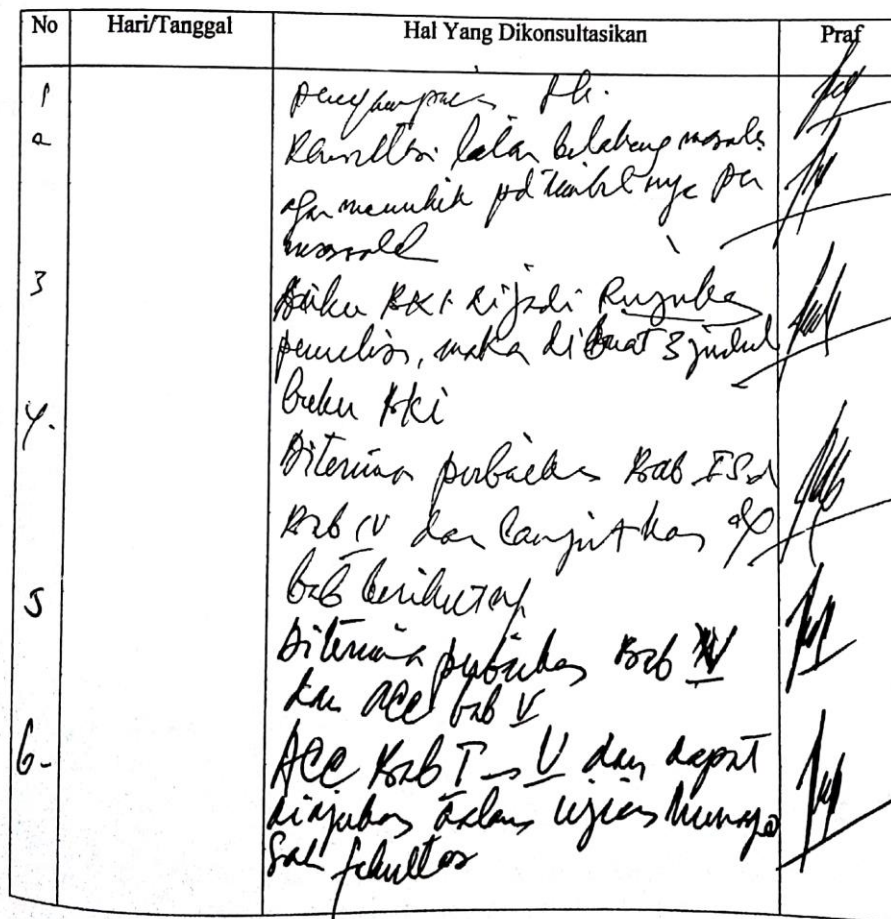 No Hari/Tanggal Hal Yang Dikonsultasikan Praf
1
2 latar belakang
pd timbulnya
3 Buku BKI dijadi Rujuka
penulisan, maka dibuat 3 judul
buku BKI
4. Diterima perbaikan Bab I Sd
Bab IV dan lanjutkan
bab berikutny
5 Diterima perbaikan Bab IV
dan ACC bab V
6- ACC Bab I - V dan dapat
diajukan dalam ujian Munaqa
sah fakultas